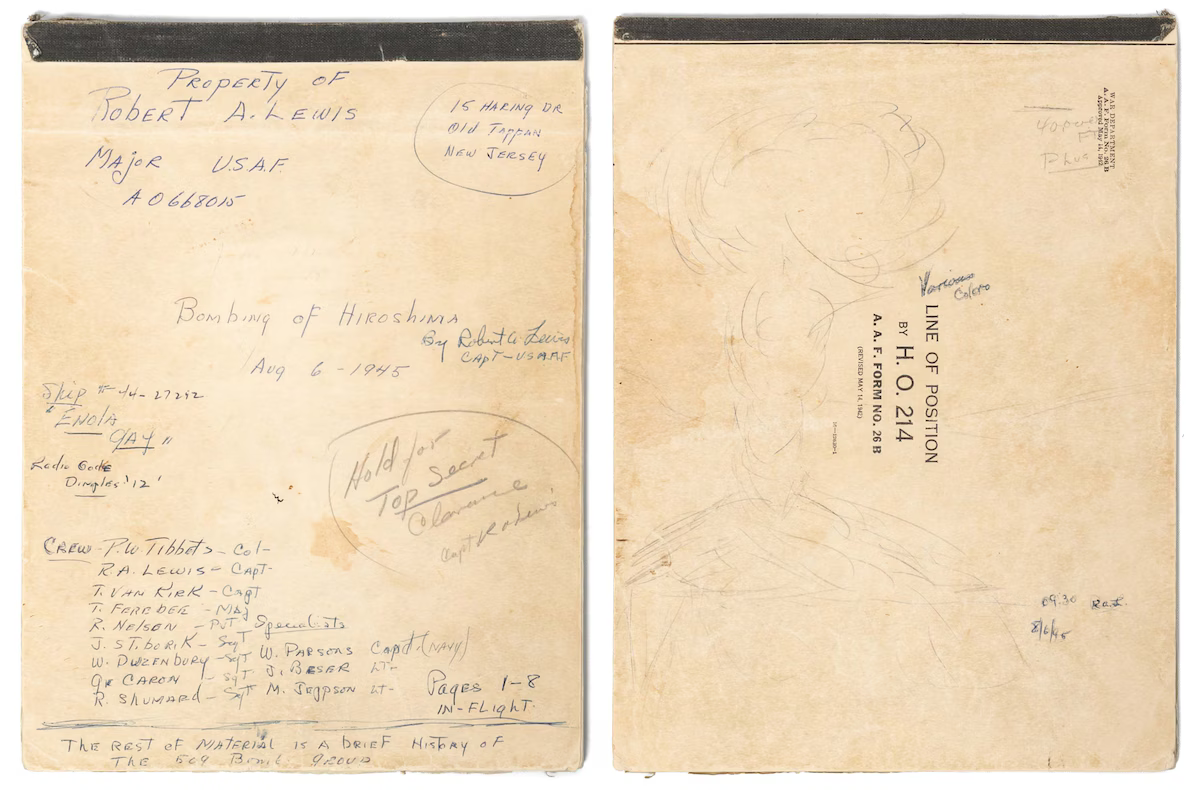 PROPERTY OF
ROBERT A. LEWIS
MAJOR USAF
AO668015
15 HARING DR
OLD TAPPAN
NEW JERSEY
BOMBING OF HIROSHIMA
By Robert A. Lewis
CAPT-USAAF
Aug 6-1945
Ship #-44-27292
"ENOLA
GAY"
Radio Code
Dimples '12'
Hold for
TOP Secret
Clearance
Capt R A Lewis
CREW-P.W. Tibbets-Col-
R.A. LEWIS-CAPT-
T. VAN KIRK-Capt
T. FEREBEE-MAJ
R. NELSON-PVT
J. STIBORIK-SgT
W. DUZENBURY-SgT
G. CARON-SgT
R. SHUMARD-SgT
Specialists
W. PARSONS Capt. (NAVY)
J. BESER LT-
M. JEPPSON LT-
PAGES 1-8
IN-FLIGHT.
THE REST OF MATERIAL IS A BRIEF HISTORY OF
THE 509 Bomb. GROUP
WAR DEPARTMENT
A. A. F. Form No. 26 B
Approved May 14, 1942
Various
Colors
LINE OF POSITION
BY H. O. 214
A. A. F. FORM NO. 26 B
(REVISED MAY 14, 1942)
09:30 R.a.L.
8/6/45